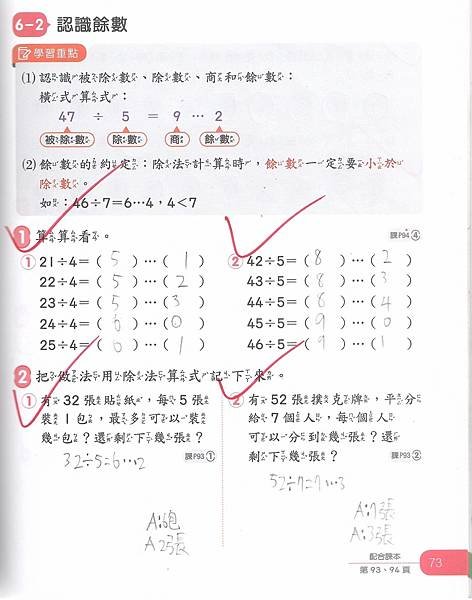 6-2 認識餘數
學習重點
(1) 認識被除數、除數、商和餘數：
橫式算式：
47 ÷ 5 = 9 … 2
被除數 除數 商 餘數
(2) 餘數的約定：除法計算時，餘數一定要小於
除數。
如：46÷7＝6…4，4＜7
1 算算看。 課P94 ④
① 21÷4＝( 5 )…( 1 )
22÷4＝( 5 )…( 2 )
23÷4＝( 5 )…( 3 )
24÷4＝( 6 )…( 0 )
25÷4＝( 6 )…( 1 )
② 42÷5＝( 8 )…( 2 )
43÷5＝( 8 )…( 3 )
44÷5＝( 8 )…( 4 )
45÷5＝( 9 )…( 0 )
46÷5＝( 9 )…( 1 )
2 把做法用除法算式記下來。
① 有32張貼紙，每5張
裝1包，最多可以裝
幾包？還剩下幾張？
課P93 ①
32÷5=6…2
A:6包
A:2張
② 有52張撲克牌，平分
給7個人，每個人
可以分到幾張？還
剩下幾張？ 課P93 ②
52÷7=7…3
A:7張
A:3張
配合課本
第93、94頁
73